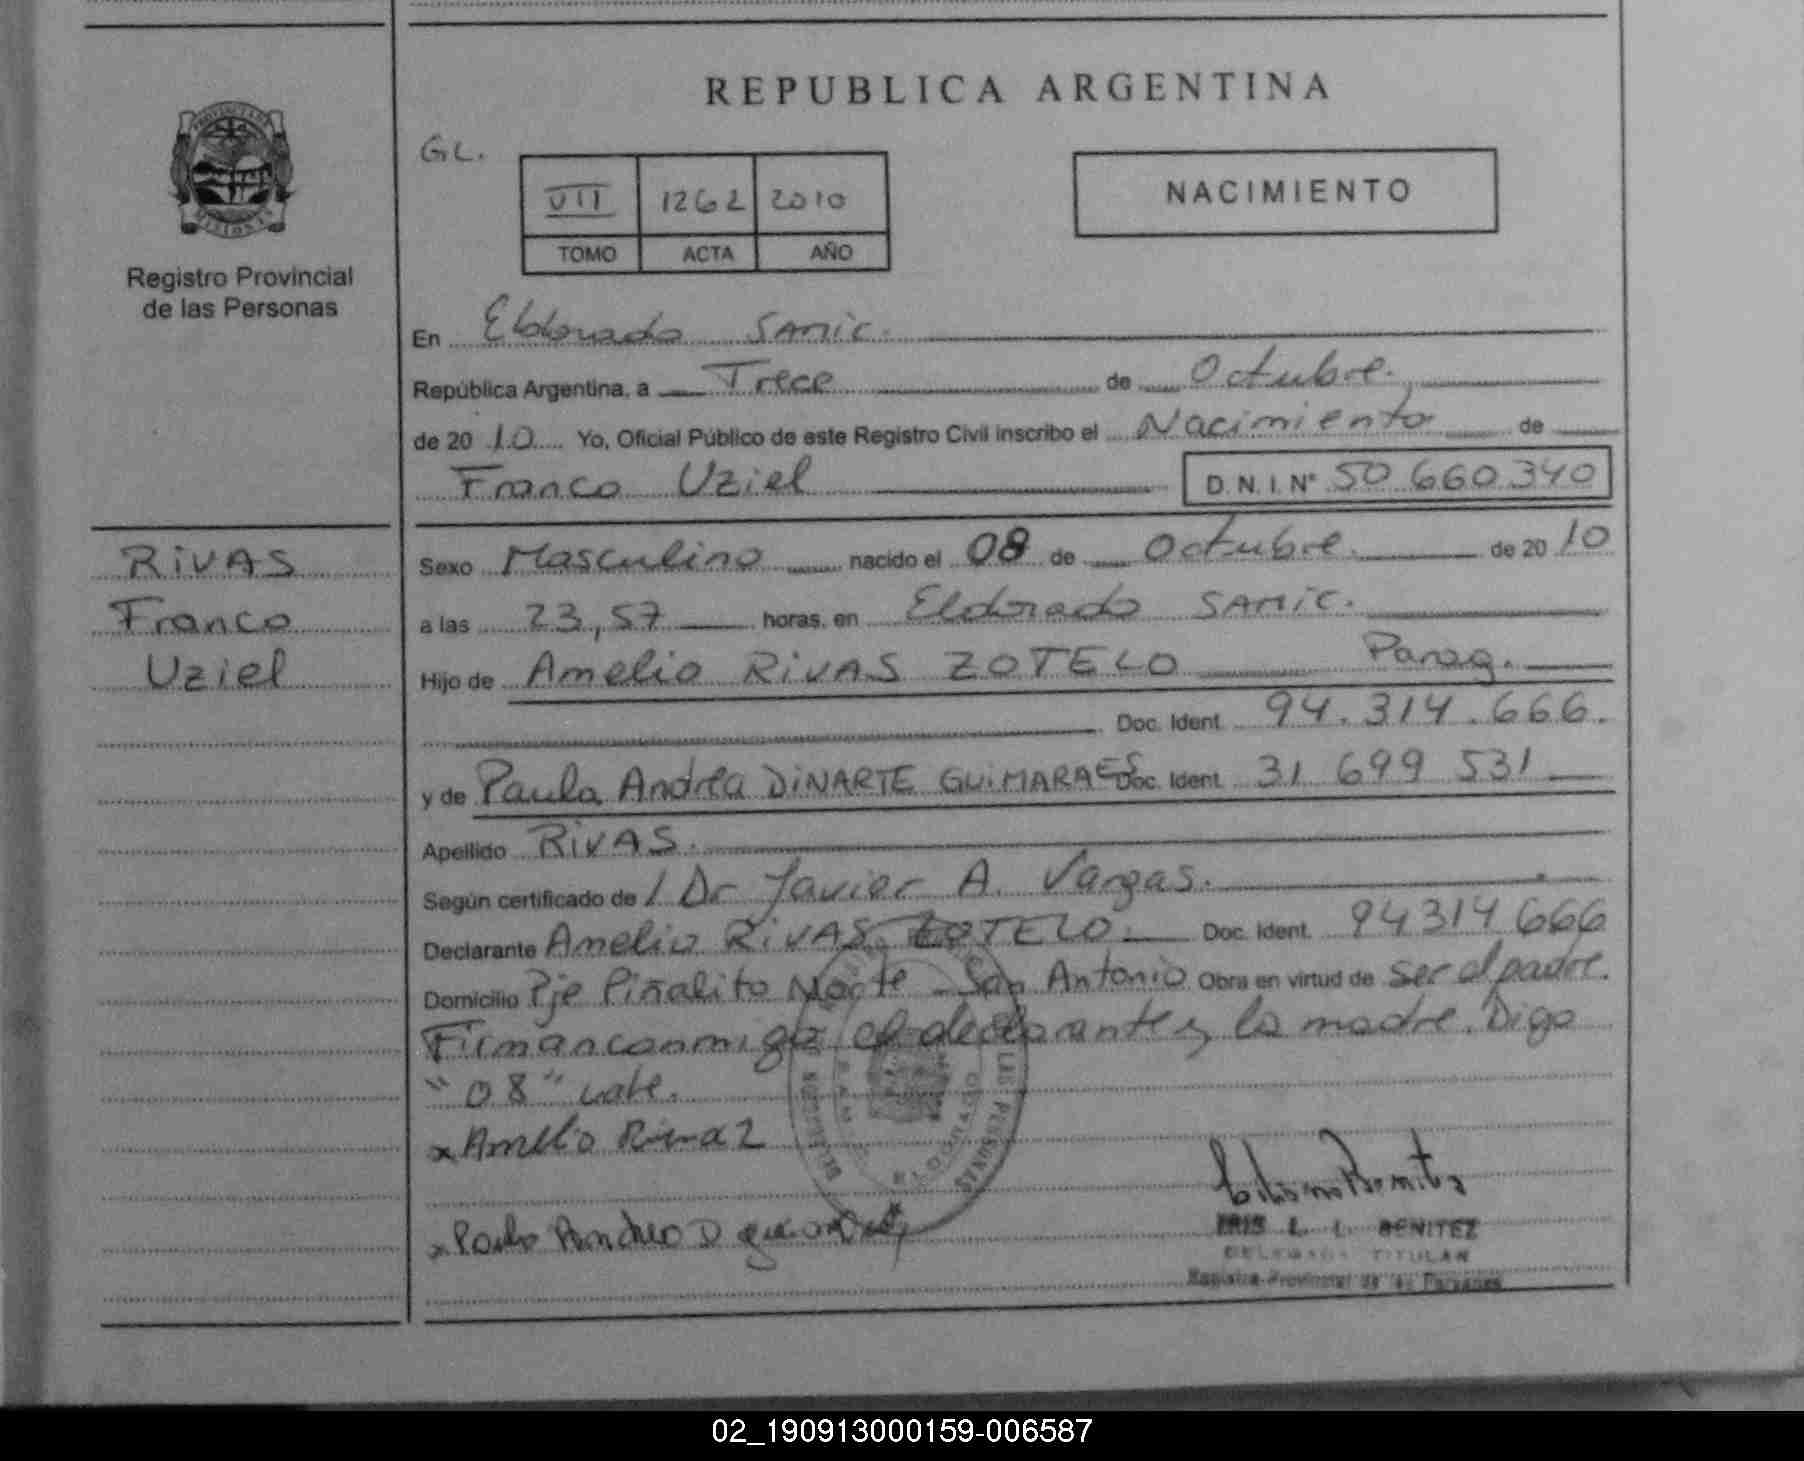 REPUBLICA ARGENTINA
GL.
VII 1262 2010
TOMO ACTA AÑO
NACIMIENTO
PROVINCIA DE MISIONES
Registro Provincial
de las Personas
En Eldorado SAMIC.
República Argentina, a Trece de Octubre.
de 20 10 Yo, Oficial Público de este Registro Civil inscribo el Nacimiento de
Franco Uziel D.N.I. N° 50 660 340
RIVAS
Franco
Uziel
Sexo Masculino nacido el 08 de Octubre. de 20 10
a las 23,57 horas, en Eldorado SAMIC.
Hijo de Amelio RIVAS ZOTELO Parag.
Doc. Ident. 94.314.666.
y de Paula Andrea DINARTE GUIMARAES Doc. Ident. 31 699 531
Apellido RIVAS.
Según certificado de / Dr Javier A. Vargas.
Declarante Amelio RIVAS ZOTELO. Doc. Ident. 94314666
Domicilio Pje Piñalito Norte - San Antonio Obra en virtud de ser el padre.
Firmanconmigo el declarante y la madre. Digo
"08" vale.
x Amelio
x Paula Andrea D
LAS PERSONAS
IRIS L. L. BENITEZ
DELEGADA TITULAR
Registro Provincial de las Personas
02_190913000159-006587